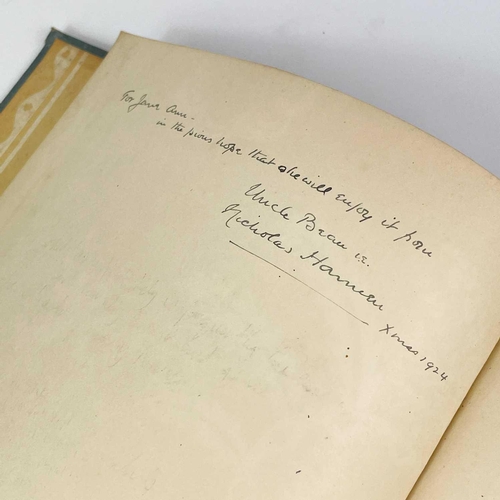 For Jane Ann -
in the pious hope that she will enjoy it from
Uncle
Nicholas Hannen
Xmas 1924